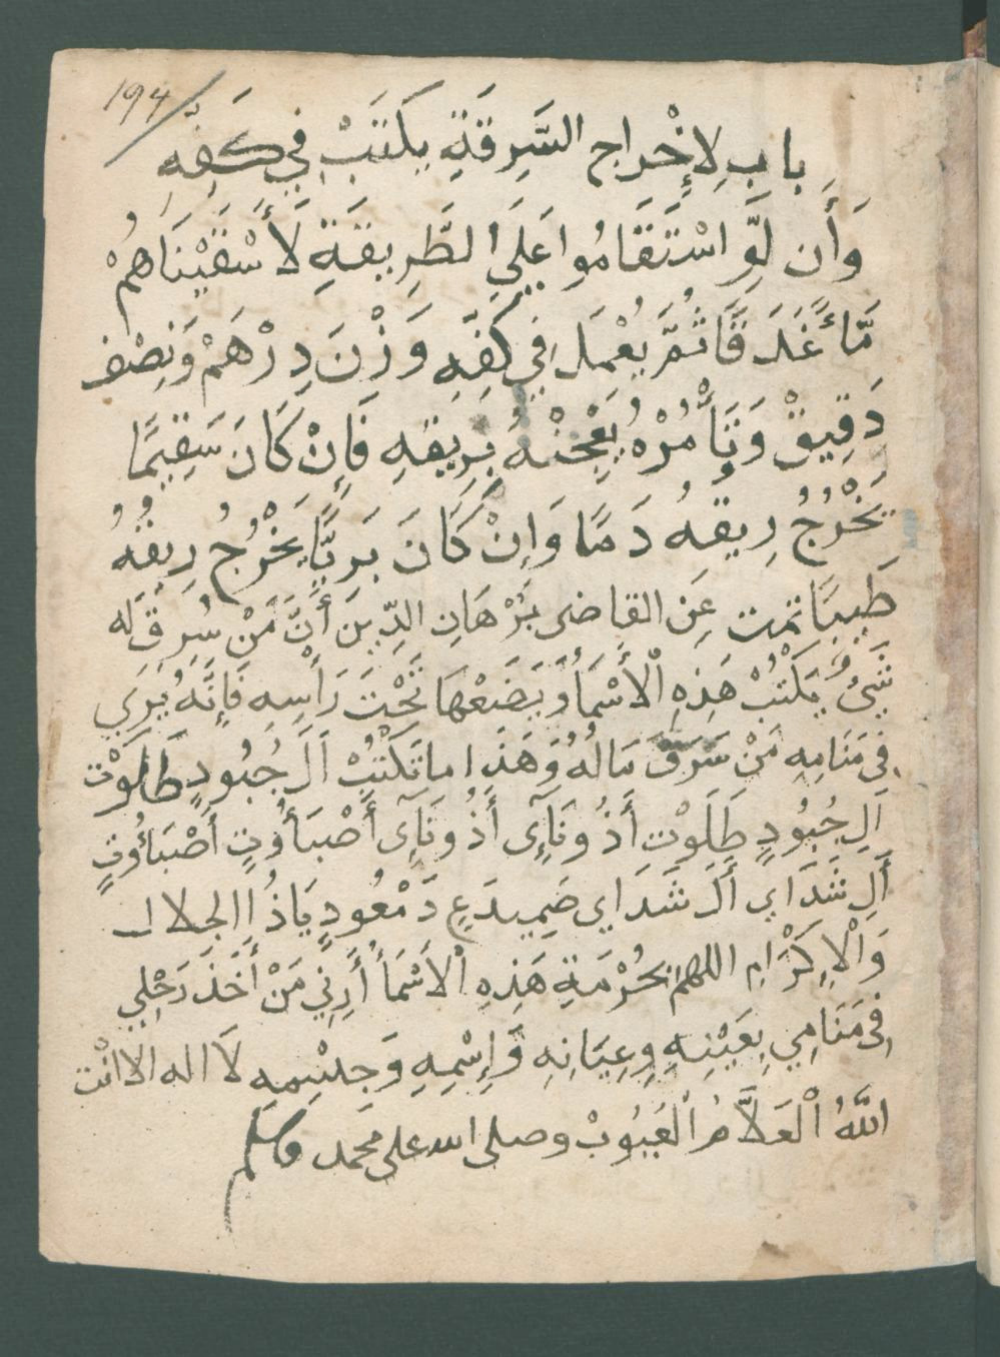 194
باب لِإِخْراج السَّرِقَةِ يكتَبْ فِي كَفِّهِ
وَأَن لَوِّ اسْتَقَامُوا عَلَى الطَّرِيقَةِ لَأَسْقَيْنَاهُمْ
مَّاءً غَدَقًا ثُمَّ يُعْمَل فِي كَفِّهِ وَزْنَ دِرْهَمْ وَنِصْف
دَقِيقْ وَتَأْمُرْهُ يُعْجِنْهُ بِرِيقِهِ فَإِنْ كَانَ سَقِيمًا
يَخْرُجُ رِيقهُ دَمًا وَإِنْ كَانَ بَرِيًّا يَخْرُجُ رِيقُهُ
طَيِّبًا تمت عَنِ القاضى بُرْهَانِ الدِّينِ أَنَّ مَنْ سُرِقَ لَه
شَيْءٌ يَكْتُبْ هَذِهِ الْأَسْمَاءُ وَيَضَعْهَا تَحْتَ رَأْسِهِ فَإِنَّهُ يَرَي
فِي مَنَامِهِ مَنْ سَرَقَ مَالُهُ وَهَذَا ما تَكْتُبْ آلَ جُبُودٍ طَالَوْت
آلِ جُبُودٍ طَلَوْتِ أَذُونَآيِ أَذُونَآيِ أَصْبَأُوتٍ أَصْبَأُوتٍ
أَلِ شَدَاي أَلَ شَدَاي صَمِيدَعِ دَمْعُودٍ يَاذُا الجلال
وَالْإِكْرَامِ اللهم بِحُرْمَةِ هَذِهِ الْأَسْمَاءُ أَرِنِي مَنْ أَخَذَ رَحْلِي
فِى مَنَامِي بِعَيْنِهِ وِعِيَانِهِ وَإِسْمِهِ وَجِسْمِهِ لَا اله الا انْت
اللَّهُ الْعَلَّامُ الْغُيُوبْ وصلى الله على محمد وسلم